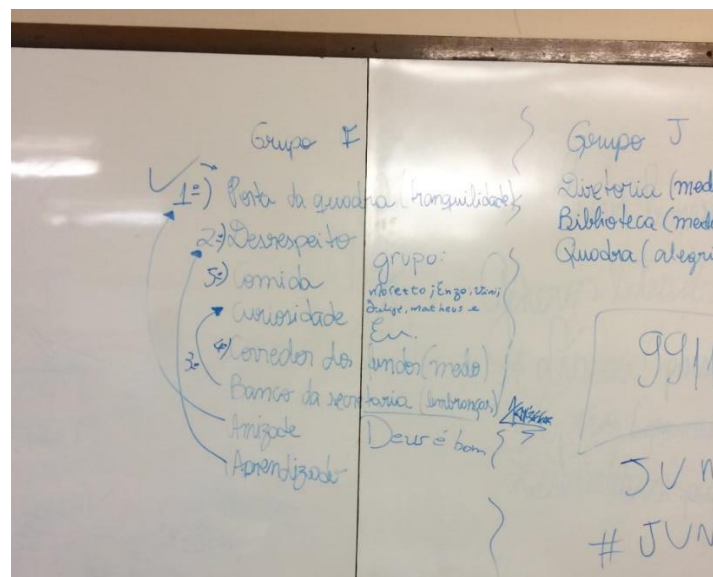 Grupo I
1º) Porta da quadra (tranquilidade)
2º) Desrespeito
5º) Comida
Curiosidade
4º) Corredor dos fundos (medo)
3º
Banco da secretaria (lembranças)
Amizade
Aprendizado
grupo:
Enzo,
matheus e
Eu.
Deus é bom
Grupo J
Diretoria (med
Biblioteca (medo
Quadra (alegri
991
JUN
# JUN